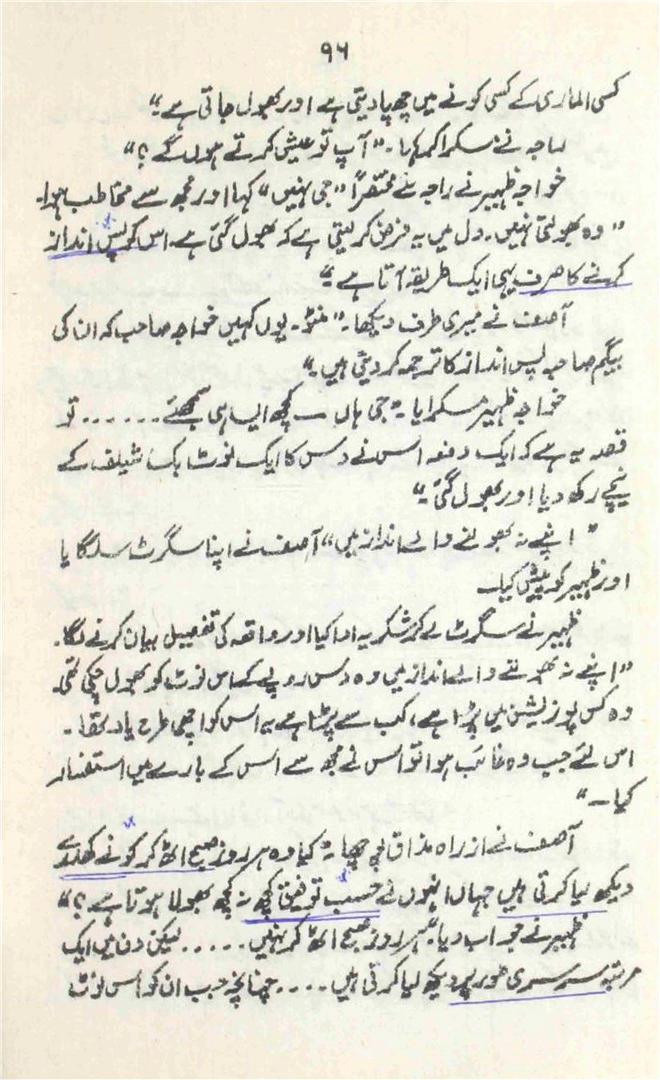 ۹۶
کسی الماری کے کسی کونے میں چھپا دیتی ہے اور بھول جاتی ہے۔“
راجہ نے مسکرا کر کہا۔ ”آپ تو عیش کرتے ہوں گے؟“
خواجہ ظہیر نے راجہ سے مختصراً ”جی نہیں“ کہا اور مجھ سے مخاطب ہوا۔
”وہ بھولتی نہیں۔ دل میں یہ فرض کر لیتی ہے کہ بھول گئی ہے۔ اس کو پس انداز
کرنے کا صرف یہی ایک طریقہ آتا ہے۔“
آصف نے میری طرف دیکھا۔ ”منٹو۔ یوں کہیں خواجہ صاحب کہ ان کی
بیگم صاحبہ پس انداز کا ترجمہ کر دیتی ہیں۔“
خواجہ ظہیر مسکرایا ”جی ہاں — کچھ ایسا ہی سمجھئے ...... تو
قصہ یہ ہے کہ ایک دفعہ اس نے دس کا ایک نوٹ بک شیلف کے
نیچے رکھ دیا اور بھول گئی۔“
”اپنے نہ بھولنے والے انداز میں“ آصف نے اپنا سگرٹ سلگایا
اور ظہیر کو پیش کیا۔
ظہیر نے سگرٹ لے کر شکریہ ادا کیا اور واقعہ کی تفصیل بیان کرنے لگا۔
”اپنے نہ بھولنے والے انداز میں وہ دس روپے کے اس نوٹ کو بھول چکی تھی۔
وہ کس پوزیشن میں پڑا ہے، کب سے پڑا ہے یہ اس کو اچھی طرح یاد تھا۔
اس لئے جب وہ غائب ہوا تو اس نے مجھ سے اس کے بارے میں استفسار
کیا۔“
آصف نے از راہ مذاق پوچھا ”کیا وہ ہر روز صبح اٹھ کر کونے کھدرے
دیکھ لیا کرتی ہیں جہاں انہوں نے حسب توفیق کچھ نہ کچھ بھولا ہوتا ہے؟“
ظہیر نے جواب دیا ”ہر روز صبح اٹھ کر نہیں ..... لیکن دن میں ایک
مرتبہ سرسری طور پر دیکھ لیا کرتی ہیں .... چنانچہ جب ان کو اس نوٹ